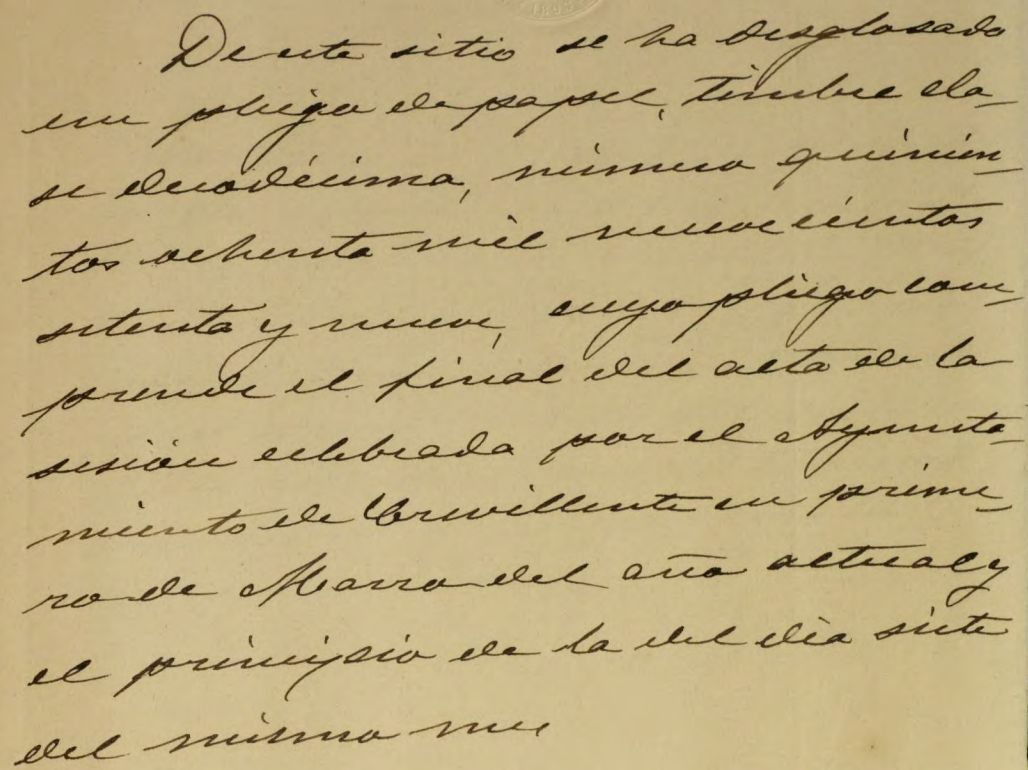 De este sitio se ha desglosado
un pliego de papel, timbre cla-
se duodécima, número quinien-
tos ochenta mil nuevecientos
setenta y nueve, cuyo pliego com-
prende el final del acta de la
sesión celebrada por el Ayunta-
miento de Crevillente en prime-
ro de Marzo del año actual y
el principio de la del día siete
del mismo mes